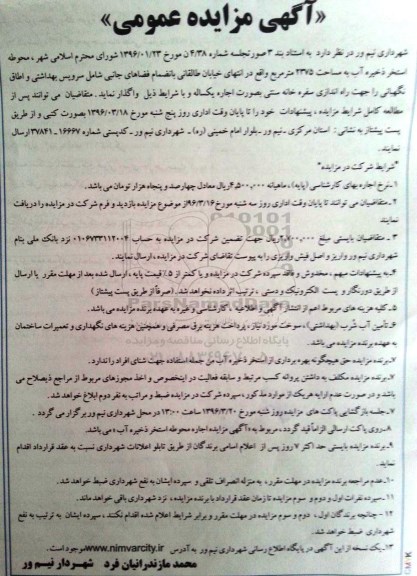 «آگهی مزایده عمومی»
شهرداری نیم ور در نظر دارد به استناد بند ۳ صورتجلسه شماره ۴/۳۸ ن مورخ ۱۳۹۶/۰۱/۲۳ شورای محترم اسلامی شهر ، محوطه
استخر ذخیره آب به مساحت ۲۳۷۵ مترمربع واقع در انتهای خیابان طالقانی بانضمام فضاهای جانبی شامل سرویس بهداشتی و اطاق
نگهبانی را جهت راه اندازی سفره خانه سنتی بصورت اجاره یکساله و با شرایط ذیل واگذار نماید . متقاضیان می توانند پس از
مطالعه کامل شرایط مزایده ، پیشنهادات خود را تا پایان وقت اداری روز پنج شنبه مورخ ۱۳۹۶/۰۳/۱۸ بصورت کتبی و از طریق
پست پیشتاز به نشانی : استان مرکزی ـ نیم ور ـ بلوار امام خمینی (ره) ـ شهرداری نیم ور ـ کدپستی شماره ۱۶۶۶۷ـ۳۷۸۴۱ ارسال
نمایند.
"شرایط شرکت در مزایده"
۱ـ نرخ اجاره بهای کارشناسی (پایه) ، ماهیانه ۴,۵۰۰,۰۰۰ریال معادل چهارصد و پنجاه هزار تومان می باشد.
۲ـ متقاضیان می توانند تا پایان وقت اداری روز سه شنبه مورخ ۹۶/۳/۱۶از موضوع مزایده بازدید و فرم شرکت در مزایده را دریافت
نمایند
۳ ـ متقاضیان بایستی مبلغ ریال جهت تضمین شرکت در مزایده به حساب نزد بانک ملی بنام
شهرداری نیم ور واریز و اصل فیش واریزی را به پیوست تقاضای شرکت در مزایده ، ارسال نمایند.
۴ـ به پیشنهادات مبهم ، مخدوش و فاقد سپرده شرکت در مزایده و یا کمتر از ۵٪ قیمت پایه ، ارسال شده بعد از مهلت مقرر یا ارسال
از طریق دورنگار و پست الکترونیک و دستی ، ترتیب اثر داده نخواهد شد. (صرفاً از طریق پست پیشتاز)
۵ـ کلیه هزینه های مربوط اعم از انتشار آگهی و اطلاعیه ، کارشناسی و غیره به عهده برنده مزایده می باشد.
۶ـ تأمین آب شرب (بهداشتی) ، سوخت مورد نیاز ، پرداخت هزینه برق مصرفی و همچنین هزینه های نگهداری و تعمیرات ساختمان
به عهده برنده مزایده می باشد.
۷ـ برنده مزایده حق هیچگونه بهره برداری از استخر ذخیره آب من جمله استفاده جهت شنای افراد را ندارد.
۸ـ برنده مزایده مکلف به داشتن پروانه کسب مرتبط و سابقه فعالیت در اینخصوص و اخذ مجوزهای مربوط از مراجع ذیصلاح می
باشد و در صورت عدم ارایه هریک از موارد مذکور ، سپرده شرکت در مزایده ضبط و مراتب به نفر دوم ابلاغ خواهد شد.
۹ـ جلسه بازگشایی پاکت های مزایده روز شنبه مورخ ۱۳۹۶/۳/۲۰ ساعت ۱۳:۰۰ در محل شهرداری نیم ور برگزار می گردد .
۸ـ روی پاکت ارسالی الزاماً قید گردد ، مربوط به «آگهی مزایده اجاره محوطه استخر ذخیره آب» می باشد.
۹ـ برنده مزایده بایستی حداکثر ۷ روز پس از اعلام اسامی برندگان از طریق تابلو اعلانات شهرداری نسبت به عقد قرارداد اقدام
نماید.
۱۰ـ عدم مراجعه برنده مزایده در مهلت مقرر ، به منزله انصراف تلقی و سپرده ایشان به نفع شهرداری ضبط خواهد شد.
۱۱ـ سپرده نفرات اول و دوم و سوم مزایده تا زمان عقد قرارداد با برنده مزایده ، نزد شهرداری باقی خواهد ماند.
۱۲ ـ چنانچه برندگان اول ، دوم و سوم مزایده در مهلت مقرر و برابر شرایط اعلام شده اقدام نکنند ، سپرده ایشان به ترتیب به نفع
شهرداری ضبط خواهد شد.
۱۳ـ یک نسخه از این آگهی در پایگاه اطلاع رسانی شهرداری نیم ور به آدرس www.nimvarcity.ir موجود است .
محمد مازندرانیان فرد شهردار نیم ور